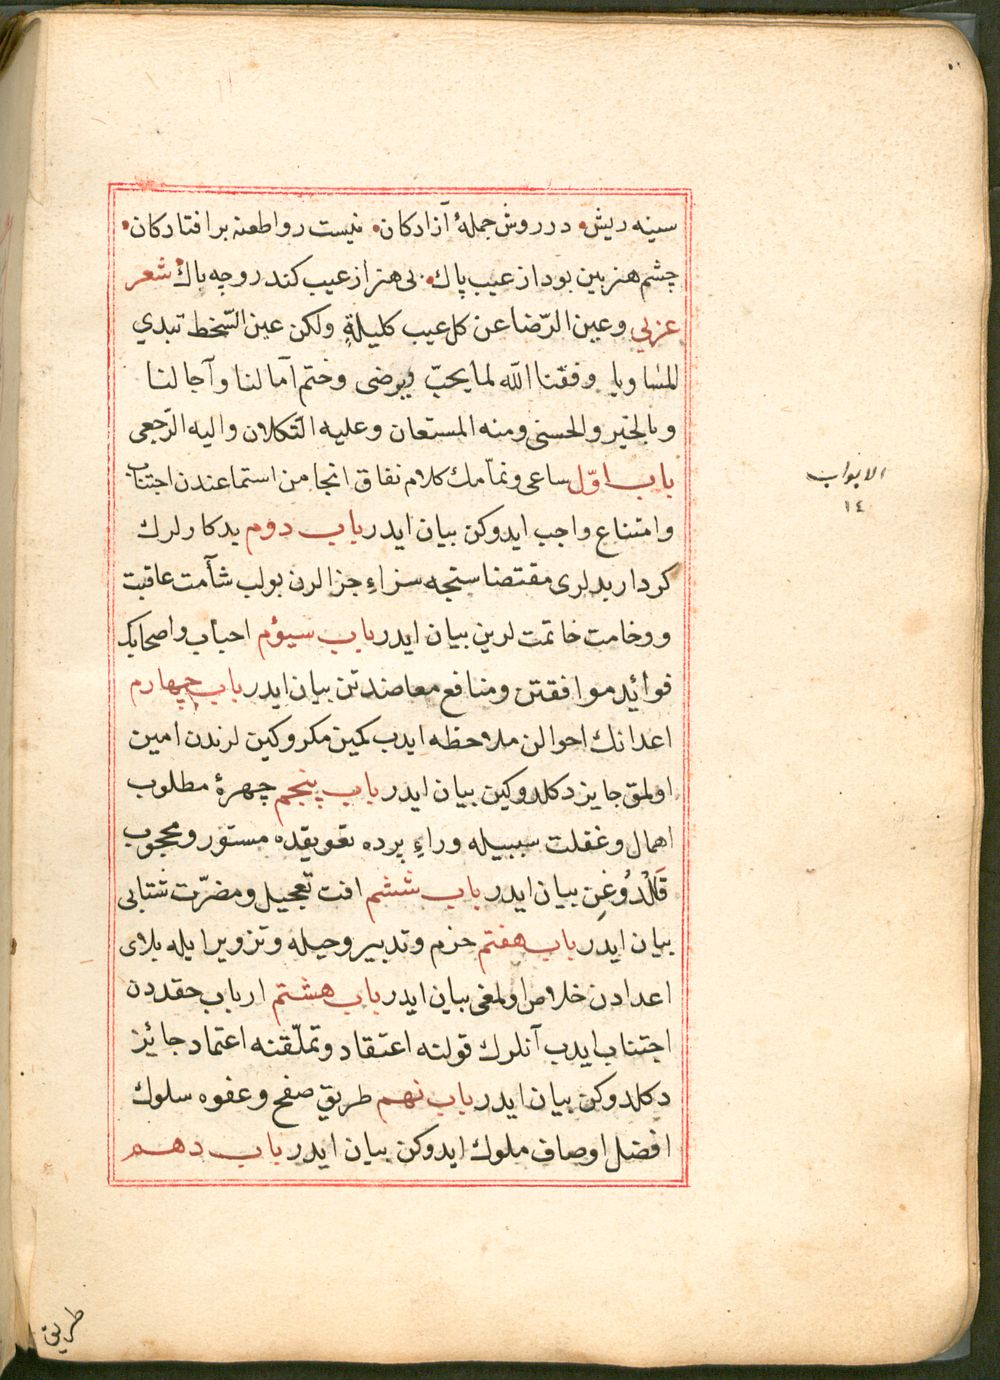 سینه ریش • در روش جملهٔ آزادکان • نیست روا طعنه بر افتادکان •
چشم هنربین بود از عیب پاك • بی هنر از عیب کند رو چه باك • شعر
عربي وعين الرّضا عن كل عيب كليلةٍ ولكن عين السّخط تبدي
المساويا وفقنا الله لما يحبّ ويرضى وختم آمالنا وآجالنا
وبالخير والحسنى ومنه المستعان وعليه التّكلان واليه الرّجعى
باب اوّل ساعی ونمّامك کلام نفاق انجامن استماعندن اجتناب
وامتناع واجب ایدوکن بیان ایدر باب دوم بدکارلرك
کردار بدلری مقتضاسنجه سزاءِ جزالرن بولب شآمت عاقبت
ووخامت خاتمت لرین بیان ایدر باب سیوٴم احباب واصحابك
فوائد موافقتن ومنافع معاضدتن بیان ایدر باب چهارم
اعدانك احوالن ملاحظه ایدب کمین مکر وکین لرندن امین
اولمق جایز دکلدوکین بیان ایدر باب پنجم چهرهٔ مطلوب
اهمال وغفلت سببیله وراءِ پرده تعویقده مستور ومحجوب
قَلْدُوغِن بیان ایدر باب ششم افت تعجیل ومضرّت شتابی
بیان ایدر باب هفتم حزم وتدبیر وحیله وتزویر ایله بلای
اعدادن خلاص اولمغی بیان ایدر باب هشتم ارباب حقددن
اجتناب ایدب آنلرك قولنه اعتقاد وتملّقنه اعتماد جائز
دکلدوکن بیان ایدر باب نهم طریق صفح وعفوه سلوك
افضل اوصاف ملوك ایدوکن بیان ایدر باب دهم
الابواب
١٤
طریق